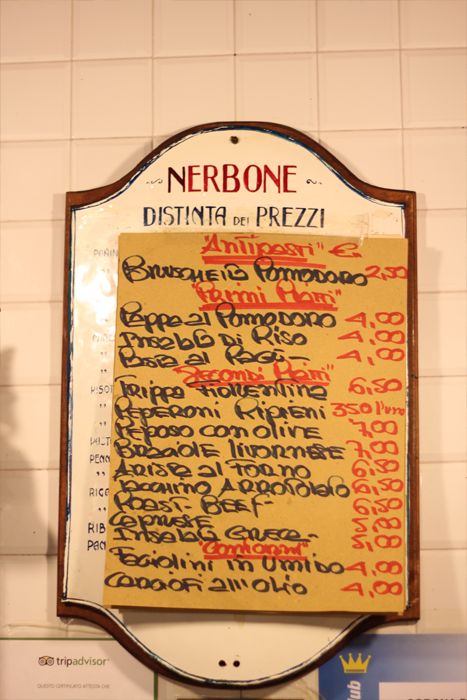 NERBONE
DISTINTA DEI PREZZI
"Antipasti" €
Bruschetta Pomodoro 2,50
"Primi Piatti"
Pappa al Pomodoro 4,80
Insalata Di Riso 4,80
Pasta al Ragù - 4,80
Secondi Piatti"
Trippa Fiorentina 6,50
Peperoni Ripieni 350 l'uno
Peposo con olive 7,00
Braciole livornese 7,00
Arista al Forno 6,50
Tacchino Arrotolato 6,50
Roast-Beef- 6,50
Caprese
Insalata Greca -
"Contorni"
Fagiolini in Umido 4,80
Carciofi all'olio 4,00
tripadvisor
QUESTO CERTIFICATO ATTESTA CHE
lub